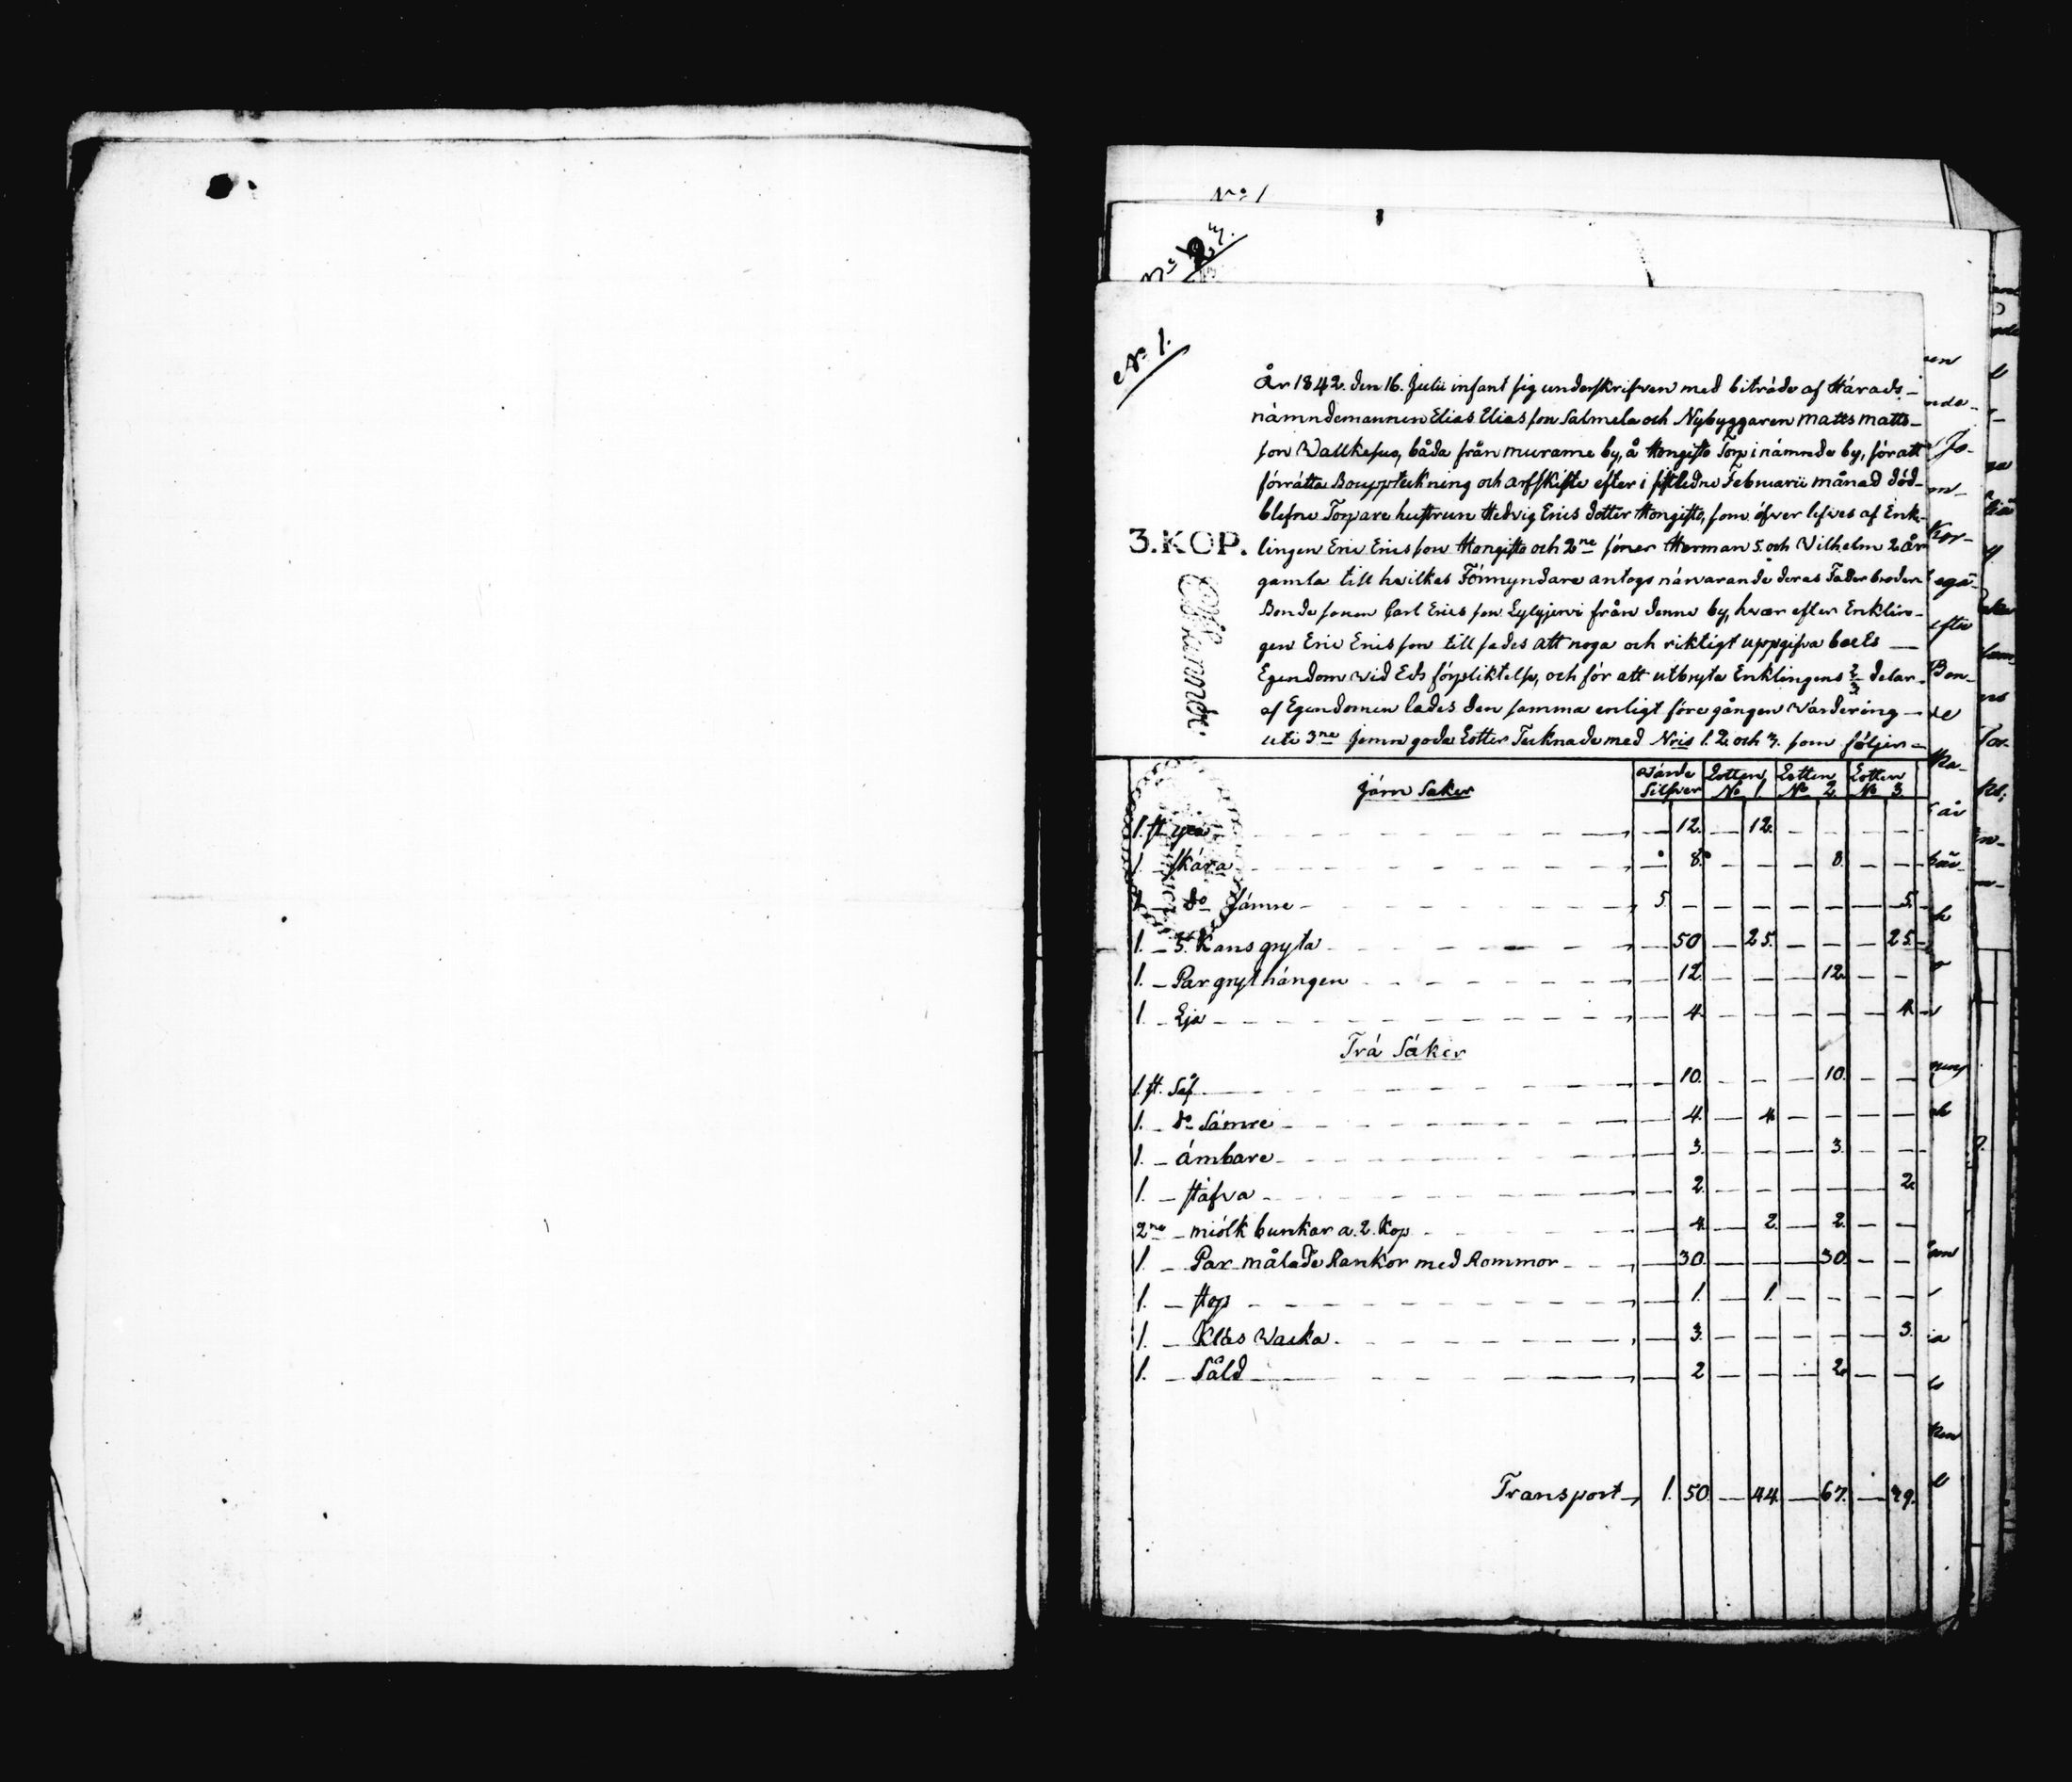 No 1
No 1.
År 1842. den 16. Julii infant sig underskrifven med biträde af Härads-
nämndemannen Elias Elias son Salmela och Nybyggaren Matts Matts-
son Wallkesuo, båda från Murame by, å Hongisto Torp i nämnde by, för att
förrätta Bouppteckning och arfskifte efter i sistledne Februarii månad död-
blefne Torpare hustrun Hedvig Erics dotter Hongisto, som öfver lefves af Enk-
3.KOP. lingen Eric Erics son Hongisto och 2ne söner Herman 5. och Vilhelm 2 år
gamla till hvilkas Förmyndare antogs närvarande deras Fader broder
Bonde sonen Carl Erics son Lylyjervi från denne by, hvar efter Enklin-
gen Eric Erics son till sades att noga och riktigt uppgifva boets
Egendom wid Eds förpliktelse, och för att utbryta Enklingens 2/3 delar
af Egendomen lades den samma enligt före gången Wärdering
uti 3ne jemn goda Lotter Tecknade med Nris 1. 2. och 3. som följer
Järn Saker Wärde Silfver Lotten No 1 Lotten No 2. Lotten No 3.
1. st yxa 12. 12.
1 skära 8. 8.
1 do sämre 5. 5.
1. 3. Kans gryta 50 25. 25.
1. Par gryt hängen 12. 12.
1. Lja 4. 4.
Trä Saker
1. st. Så 10. 10.
1. do Sämre 4. 4.
1. ämbare 3. 3.
1. stäfva 2. 2.
2ne miölk bunkar a. 2. Kop 4. 2. 2.
1. Par målade Rankor med Rommor 30. 30.
1. stop 1. 1.
1. Kläs Wacka 3. 3.
1. Såld 2 2.
Transport 1. 50. 44. 67. 39.